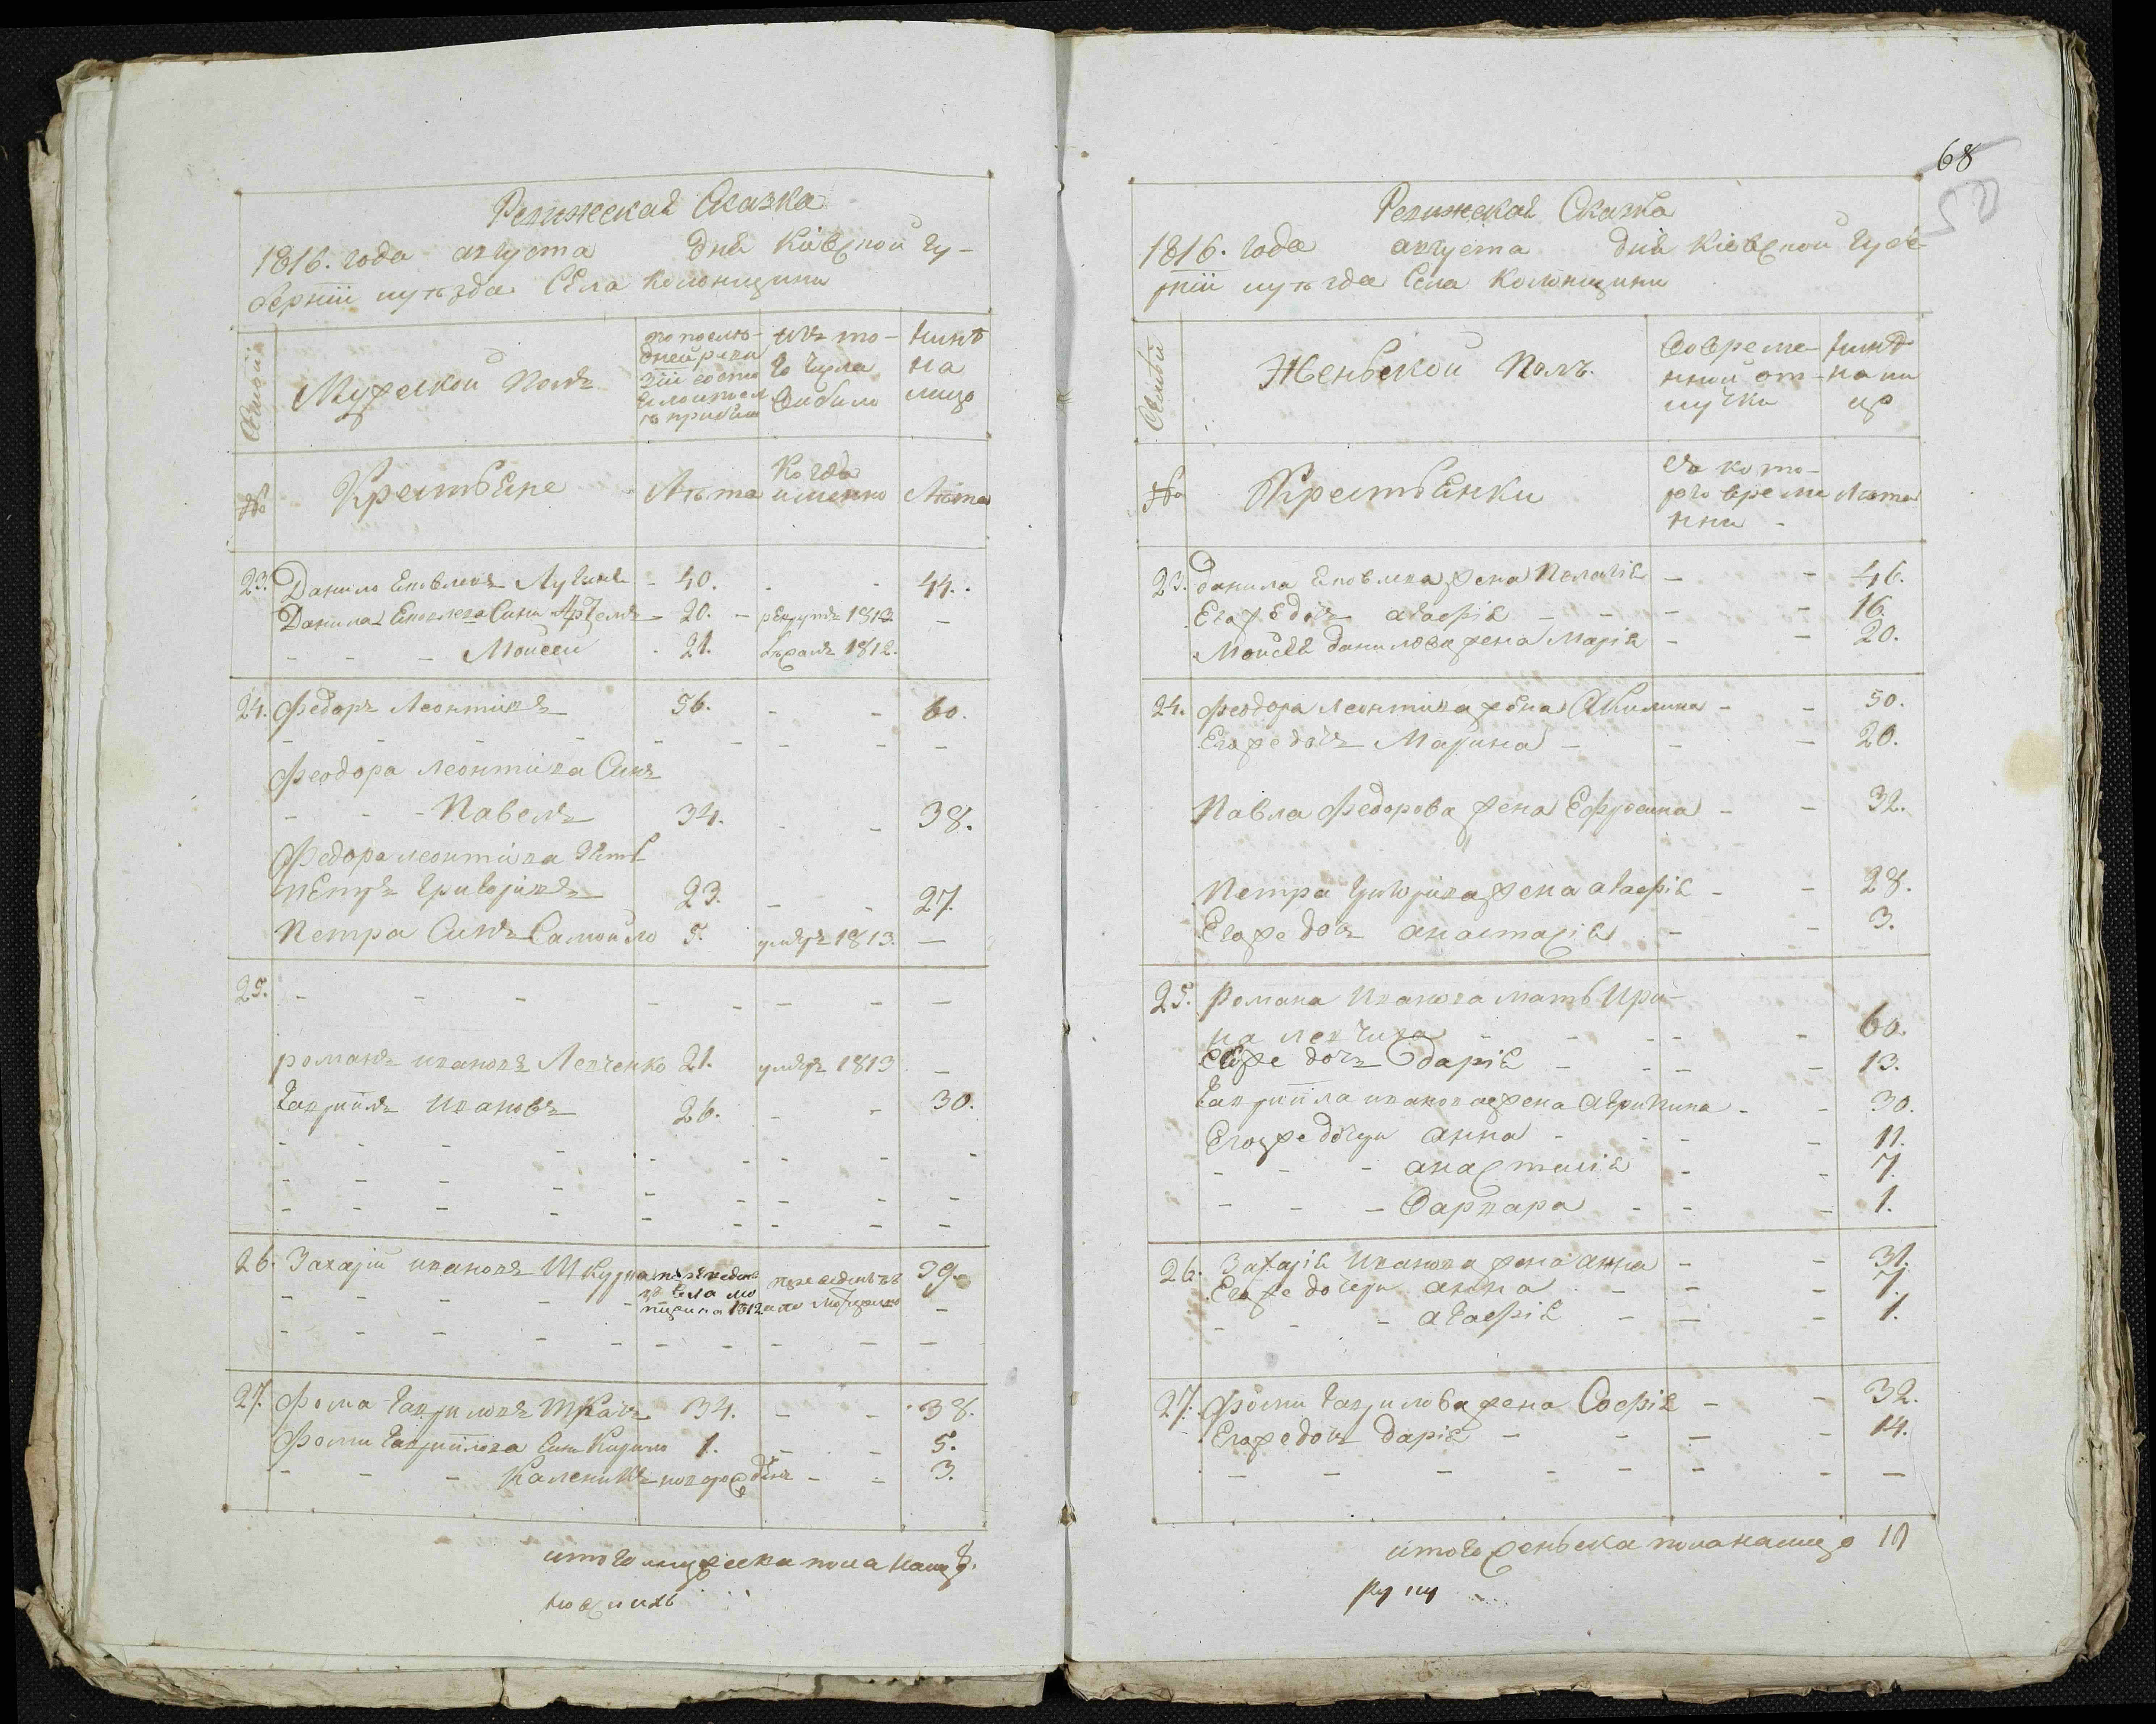 Ревижская Сказка
1816. года августа дня Кіевской гу-
берніи и уѣзда Села Колонщини
Семьи
Мужеской Полъ
по послѣ-
дней реви
зіи состо
яло и посл
ѣ прибыло
изъ то-
го числа
выбыло
нинѣ
на
лицо
№
Крестьяне
Лѣта
Когда
именно
Лѣта
23. Данило Яковлевъ Лугина - 40. - - 44.
Данила Яковлева Синъ Артемъ - 20. - рекрутъ 1813 -
- - - Моисей - 21. бѣжалъ 1812.
24. Федоръ Леонтіевъ 56. - - 60.
- - - - - - - - -
Феодора Леонтіева Синъ
- - - Павелъ 34. - - 38.
Федора Леонтіева Зять
Петръ Григоріевъ 23. - - 27.
Петра Синъ Самойло 5. умеръ 1813. -
25. - - - - - - - -
Романъ Ивановъ Левченко 21. умеръ 1813 -
Гавріилъ Ивановъ 26. - - 30.
- - - - - - - - -
- - - - - - - - -
- - - - - - - - -
26. Захарій Ивановъ Шкура переведенъ 39.
1812
- - - - - - - - -
27. Фома Гавриловъ Ткачъ 34. - - 38.
Фоми Гавріилова Синъ Кирило 1. - - 5.
- - - Каленикъ новорожденъ - - 3.
итого мужеска пола налицо 8.
68
58
Ревижская Сказка
1816. года августа дня Кіевской губе-
рніи и уѣзда Села Колонщини
Семьи
Женьской Полъ.
Во време
нной от-
лучки
нинѣ
на ли
цо
№
Крестьянки
съ кото-
рого време
нни -
Лѣта
23. Данила Яковлева жена Пелагія - - 46.
Его же дочь Агафія - - - 16.
Моисея Данилова жена Марія - - 20.
24. Феодора Леонтіева жена Акилина - - 50.
Его же дочь Марина - - - 20.
Павла Федорова жена Ефросина - - 32.
Петра Григоріева жена Агафія - - 28.
Его же дочь Анастасія - - 3.
25. Романа Иванова мать Ири-
на Левчиха - - - - 60.
Ея же дочь Дарія - - - - 13.
Гавріила Иванова жена Агрипина - - 30.
Его же дочери Анна - - - - 11.
- - - Анастасія - - 7.
- - - Варвара - - - 1.
26. Захарія Иванова жена Анна - - 31.
Его же дочери Анна - - - 7.
- - - Агафія - - - 1.
27. Фоми Гаврилова жена Софія - - 32.
Его же дочь Дарія - - - - 14.
- - - - - - - -
итого женьска пола налицо 19